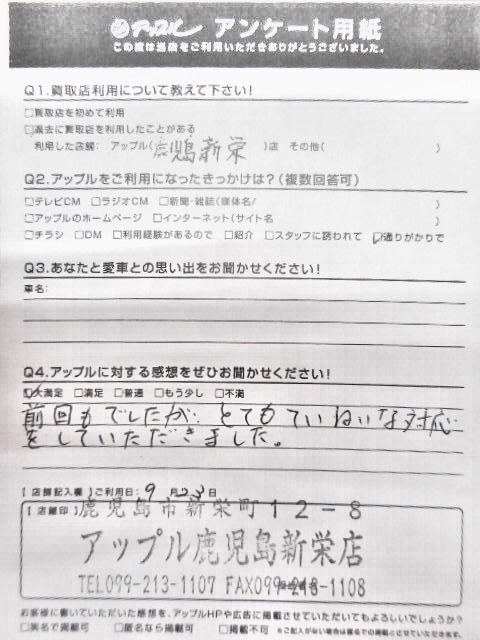 アップル アンケート用紙
この度は当店をご利用いただきありがとうございました。
Q1.買取店利用について教えて下さい!
□買取店を初めて利用
□過去に買取店を利用したことがある
利用した店舗: アップル(鹿児島新栄)店 その他( )
Q2.アップルをご利用になったきっかけは?(複数回答可)
□テレビCM □ラジオCM □新聞・雑誌(媒体名/ )
□アップルのホームページ □インターネット(サイト名 )
□チラシ □DM □利用経験があるので □紹介 □スタッフに誘われて ☑通りがかりで
Q3.あなたと愛車との思い出をお聞かせください!
車名:
Q4.アップルに対する感想をぜひお聞かせください!
☑大満足 □満足 □普通 □もう少し □不満
前回もでしたが、とてもていねいな対応
をしていただきました。
【店舗記入欄】ご利用日: 9 月 23 日
【店舗印】鹿児島市新栄町12-8
アップル鹿児島新栄店
TEL099-213-1107 FAX099-213-1108
お客様に書いていただいた感想を、アップルHPや広告に掲載させていただいてもよろしいでしょうか?
□実名で掲載可 □匿名なら掲載可 □掲載不可 ※ご記入がない場合は匿名での掲載とさせていただきます。